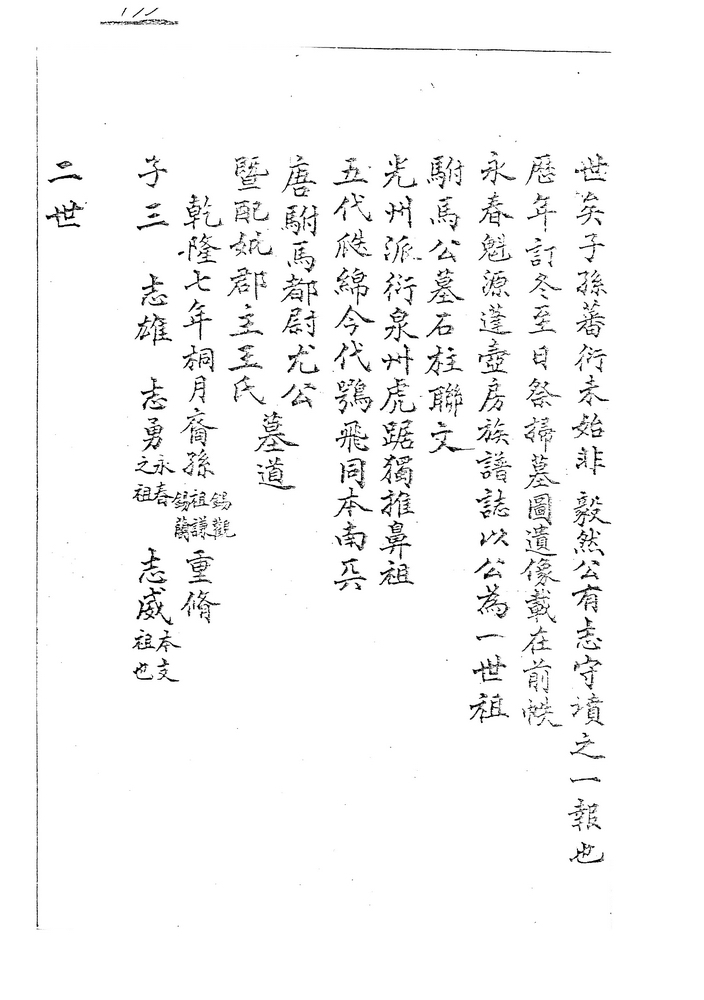 世矣子孫蕃衍未始非 毅然公有志守墳之一報也
歷年訂冬至日祭掃墓圖遺像載在前帙
永春魁源蓬壺房族譜誌以公為一世祖
駙馬公墓石柱聯文
光州派衍泉州虎踞獨推鼻祖
五代瓞綿今代鶚飛同本南
唐駙馬都尉尤公
暨配妣郡主王氏
墓道
乾隆七年桐月裔孫 錫觀 祖謙 錫蘭 重脩
子三 志雄 志勇 永春之祖 志威 本支祖也
二世